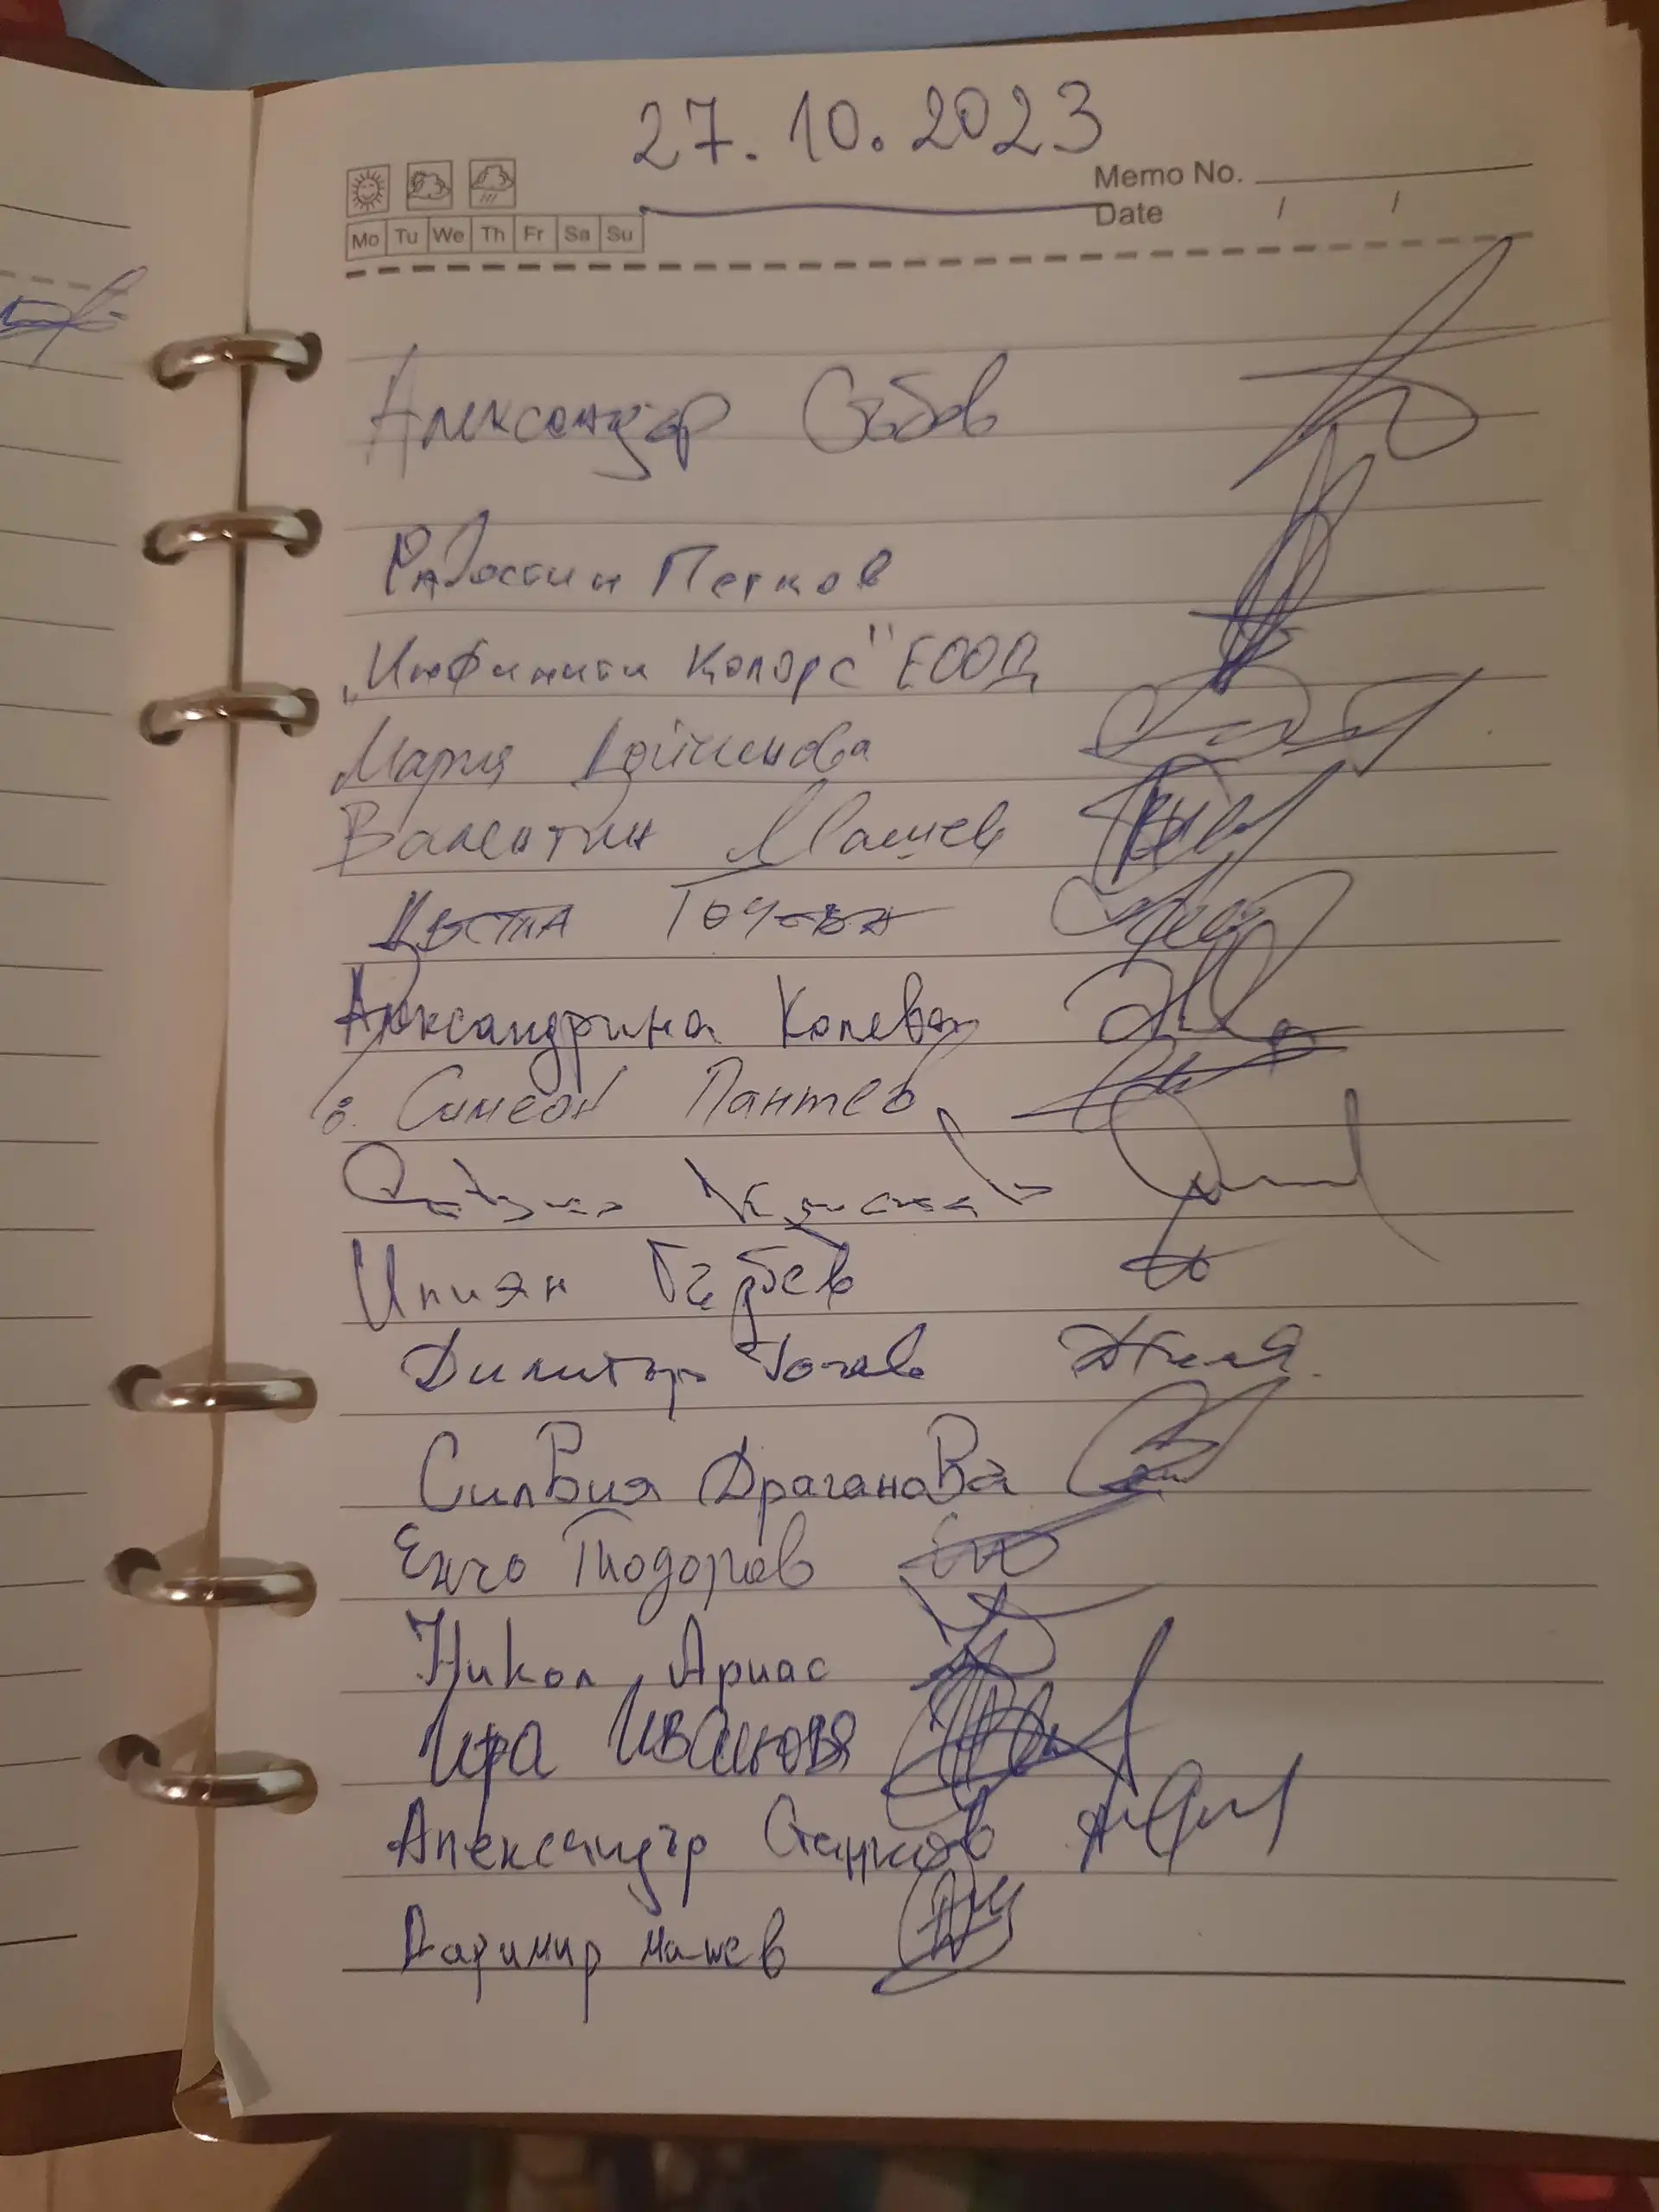 27.10.2023
Memo No.
Date / /
Mo Tu We Th Fr Sa Su
Александър Събов
Радостин Петков
„Инфинити Колорс" ЕООД
Мария Дойчинова
Валентин Машев
Цвета Точева
Александрина Колева
Симеон Пантев
Илиян Гърбев
Димитър Точев
Силвия Драганова
Енчо Тодоров
Никол Ариас
Ира Иванова
Александър Станков
Машев